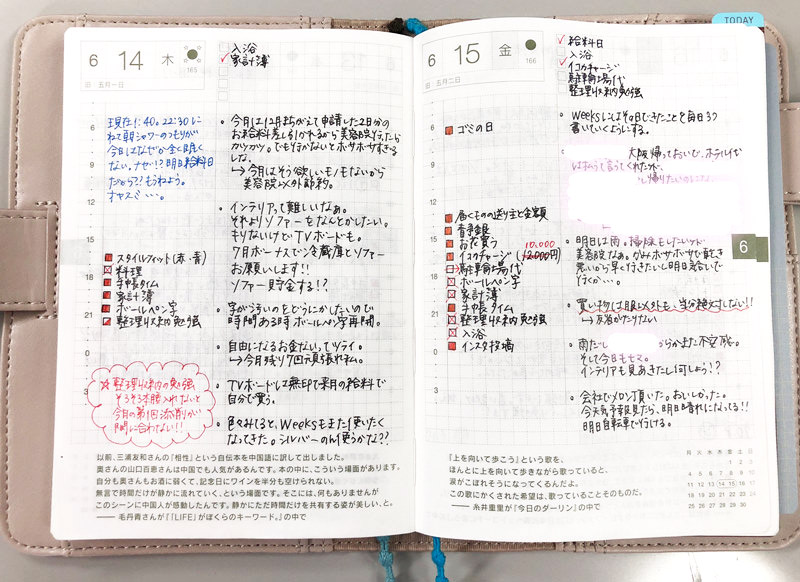 6 14 木 166
旧 五月一日
入浴
家計簿
現在1:40。22:30に
ねて朝シャワーのつもりが
今日はなぜか全く眠く
ない。ナゼ!?明日給料日
だから??もうねよう。
オヤスミ・・・。
6
9
12
15
18
21
0
3
スタイルフィット(赤・青)
料理
手帳タイム
家計簿
ボールペン字
整理収納勉強
☆整理収納の勉強
そろそろ本腰入れないと
今月の第1回添削が
間に合わない!!
今月は12月まちがえて申請した2日分の
お給料差し引かれるから美容院行ったら
カツカツ。でも行かないとボサボサすぎる
しな。
→今月はそう欲しいモノもないから
美容院以外節約。
インテリアって難しいなぁ。
それよりソファーをなんとかしたい。
キリないけどTVボードも。
7月ボーナスでで冷蔵庫とソファー
お願いします!!
ソファー貯金する!?
字が汚いのをどうにかしたいので
時間ある時ボールペン字再開。
自由になるお金ないってツライ。
→今月残り7回頑張れ私。
TVボードは無印で来月の給料で
自分で買う。
色々みてると、Weeksもまた使いたく
なってきた。シルバーのん使うかな??
以前、三浦友和さんの『相性』という自伝本を中国語に訳して出しました。
奥さんの山口百恵さんは中国でも人気があるんです。本の中に、こういう場面があります。
自分も奥さんもお酒に弱くて、記念日にワインを半分も空けられない。
無言で時間だけが静かに流れていく、という場面です。そこには、何もありませんが
このシーンに中国人が感動したんです。静かにただ時間だけを共有する姿が美しい、と。
——毛丹青さんが『「LIFE」がぼくらのキーワード。』の中で
TODAY
6 15 金 166
旧 五月二日
給料日
入浴
イコカチャージ
駐輪場代
整理収納勉強
6
9
12
15
18
21
0
3
ゴミの日
届くものの送り主と金額
香典金
お花買う
10,000
イコカチャージ(12,000円)
駐輪場代
ボールペン字
家計簿
手帳タイム
整理収納勉強
入浴
インスタ投稿
Weeksにはその日できたことを毎日3つ
書いていくようにする。
大阪帰っておいで、ホテル代
は払うって言うてくれたけど、
明日は雨。掃除もしたいケド
美容院なぁ。かみボサボサで乾き
悪いから早く行きたいし明日気合いで
行くか・・・。
買い物は服以外も、当分絶対しない!!
→反省がたりない
雨だし
そして今日もヒマ。
インテリアも見あきたし何しよう!?
会社でメロン頂いた。おいしかった。
今天気予報見たら、明日晴れになってる!!
明日自転車で行ける。
6
「上を向いて歩こう」という歌を、
ほんとに上を向いて歩きながら歌っていると、
涙がこぼれそうになってくるんだよ。
この歌にかくされた希望は、歌っていることそのものだ。
——糸井重里が『今日のダーリン』の中で
月 火 水 木 金 土 日
1 2 3
4 5 6 7 8 9 10
11 12 13 14 15 16 17
18 19 20 21 22 23 24
25 26 27 28 29 30